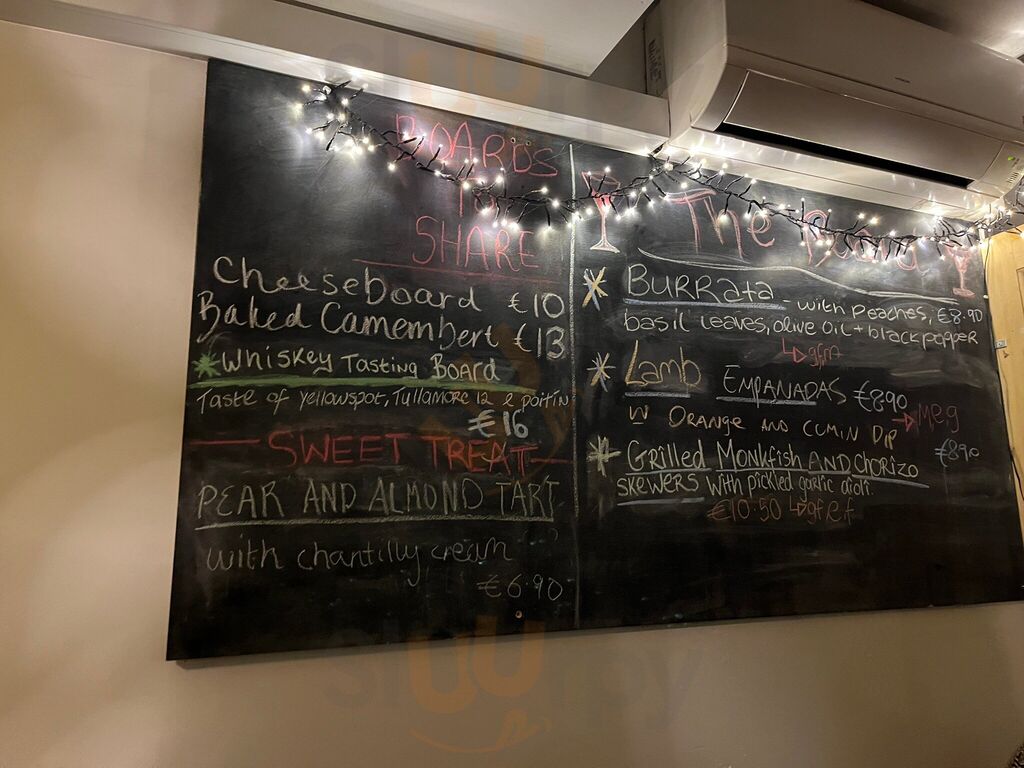 BOARDS
TO
SHARE
Cheeseboard €10
Baked Camembert €13
*Whiskey Tasting Board
Taste of Yellowspot, Tullamore 12 & Poitin
€16
SWEET TREAT
PEAR AND ALMOND TART
with chantilly cream
€6.90
The
* BURRata - with peaches, €8.90
basil leaves, olive oil + black pepper
* Lamb EMPANADAS €8.90
W ORANGE AND CUMIN DIP
* Grilled Monkfish AND Chorizo €8.90
SKEWERS with pickled garlic aioli.
€10.50
sluurpy